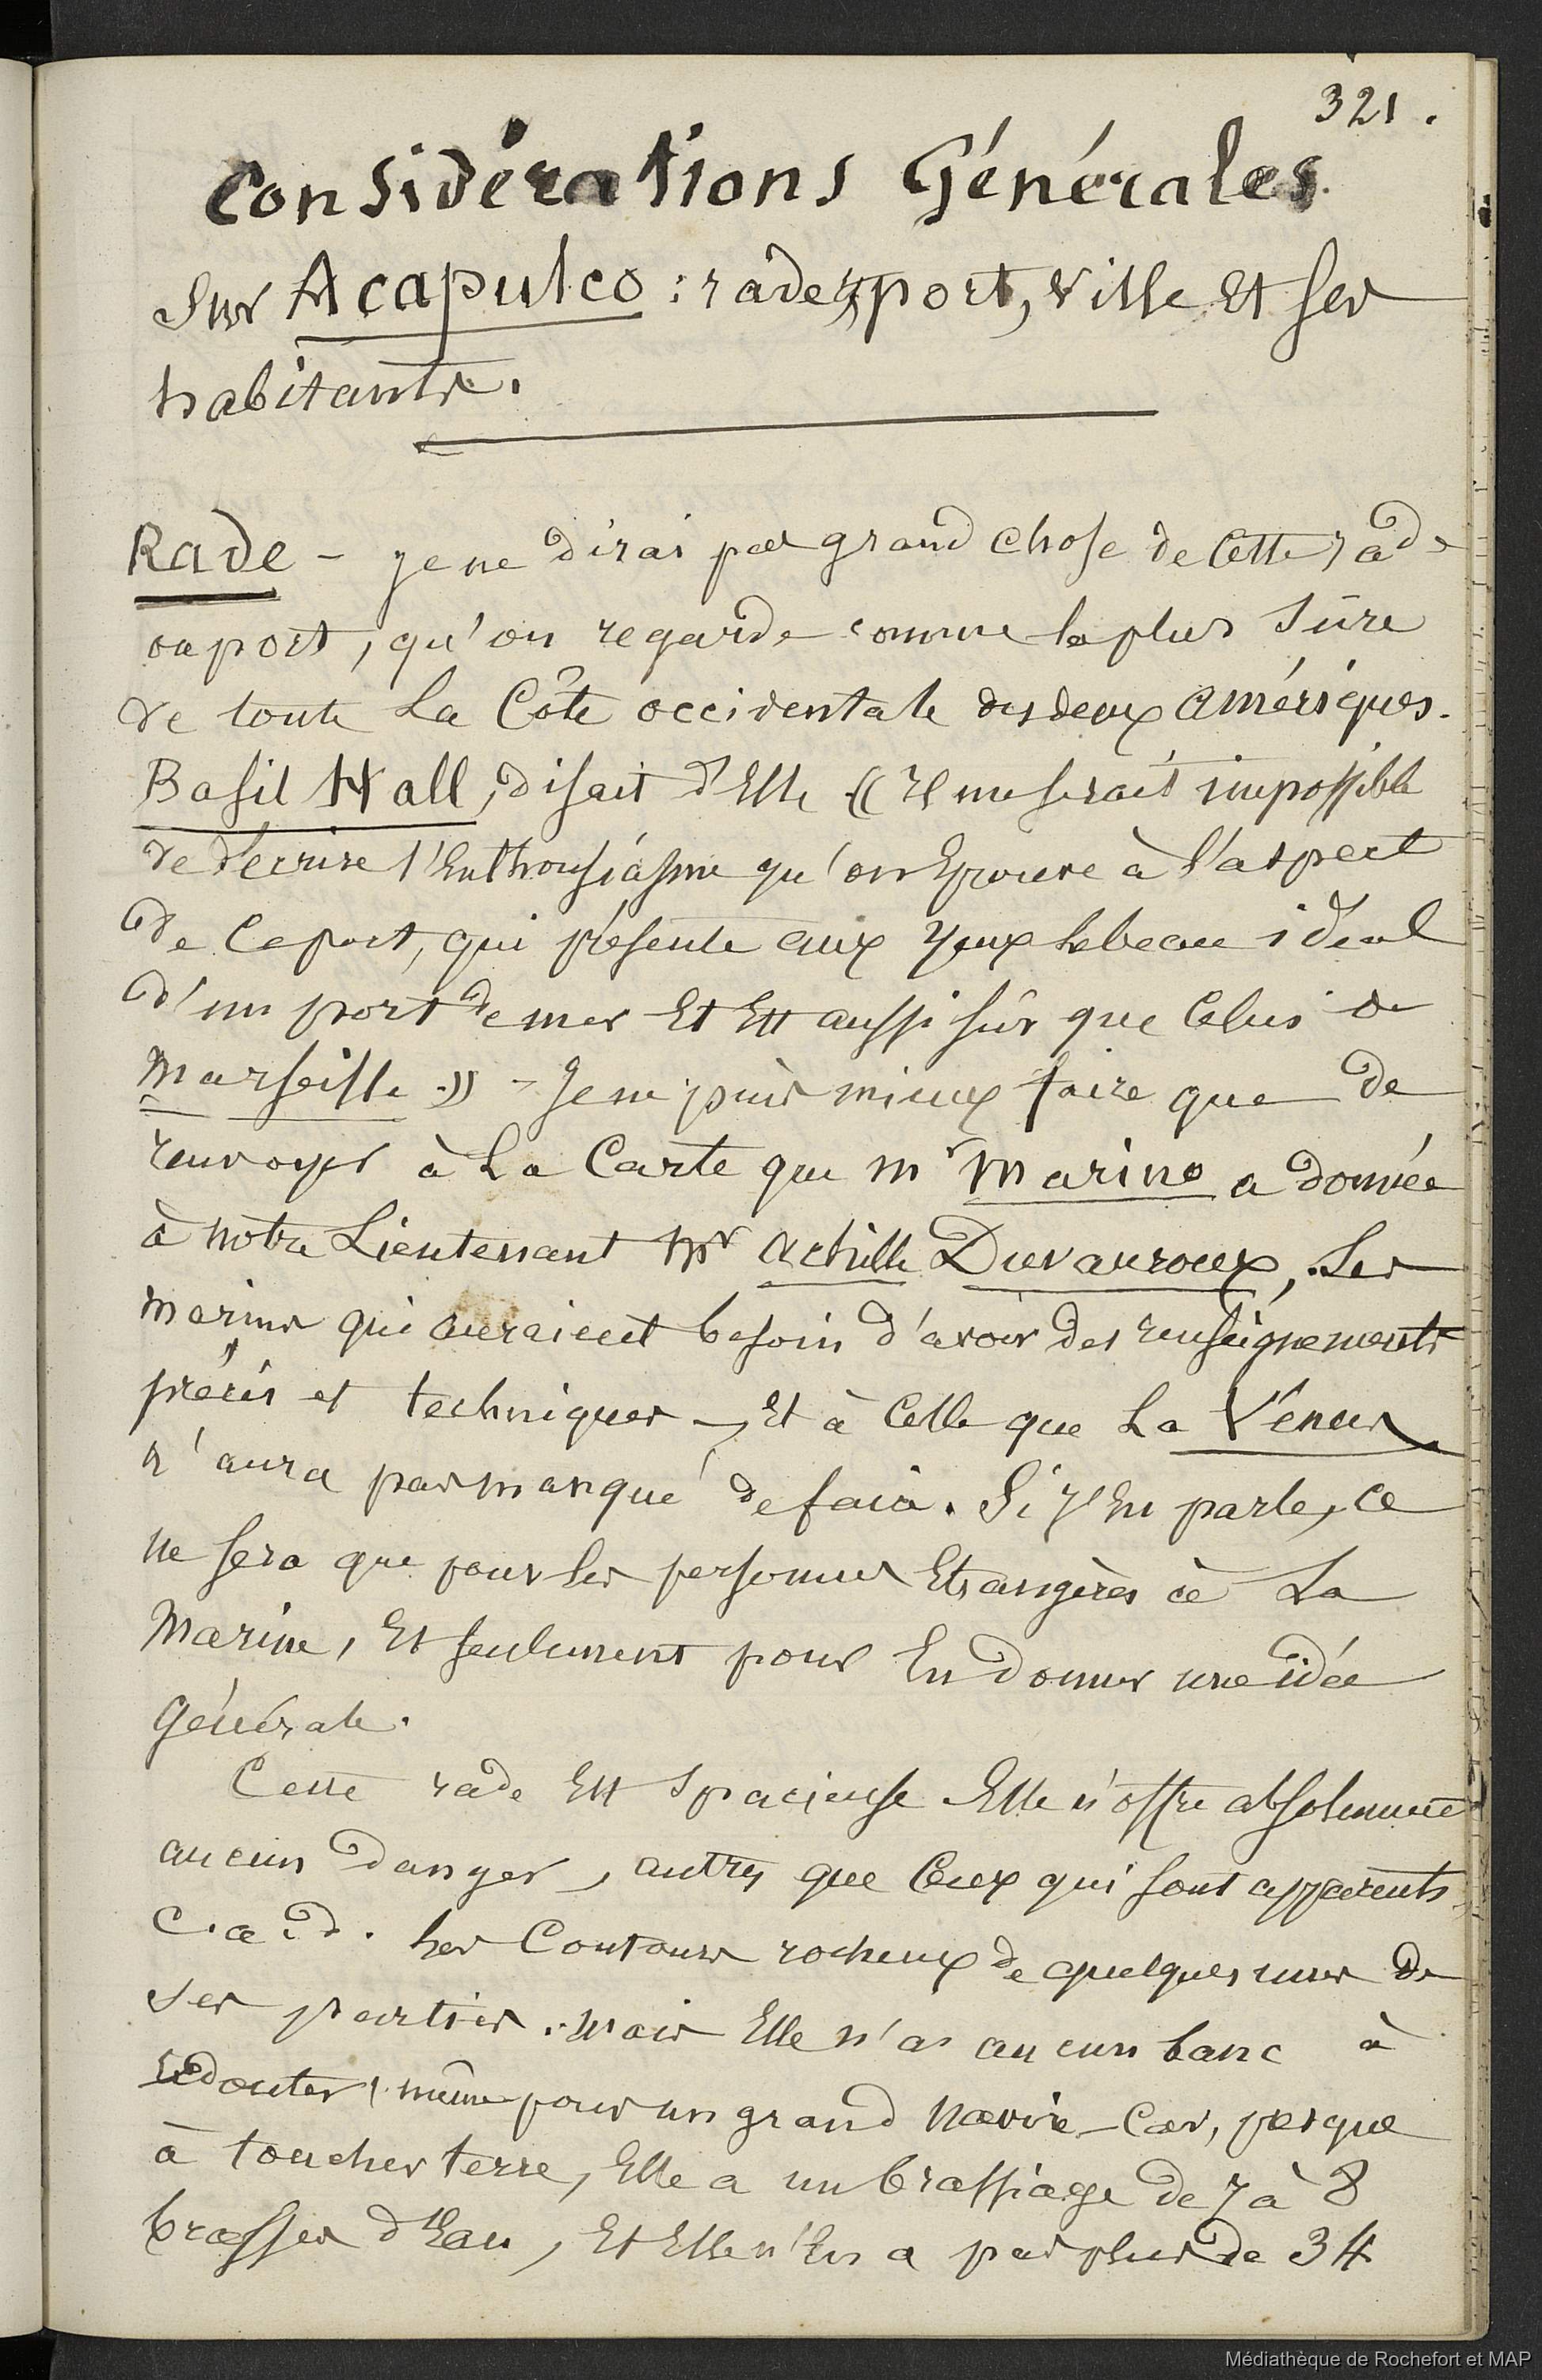 321.
Considérations Générales
Sur Acapulco : rade, port, ville et ses
habitants.
Rade - je ne dirai pas grand chose de cette rade
ou port, qu'on regarde comme la plus sûre
de toute la Côte occidentale des deux Amériques.
Basil Hall, disait d'Elle « Il me serait impossible
de décrire l'Enthousiasme qu'on Eprouve à l'aspect
de ce port, qui présente aux yeux le beau idéal
d'un port de mer Et Est aussi sûr que Celui de
Marseille .» - Je ne puis mieux faire que de
renvoyer à La Carte que Mr Marino a donnée
à notre Lieutenant Mr Achille Duvauroux, Les
marins qui auraient besoin d'avoir des renseignements
précis et techniques -, Et à Celle que La Vénus
n'aura pas manqué de faire. Si j'En parle, ce
ne sera que pour les personnes Etrangères à La
Marine, Et seulement pour En donner une idée
générale.
Cette rade Est spacieuse. Elle n'offre absolument
aucun danger, autres que Ceux qui sont apparents,
C.a.d. les Contours rocheux de quelques unes de
ses parties. Mais Elle n'a aucun banc à
redouter, même pour un grand Navire - Car, presque
à toucher terre, Elle a un brassiage de 7 à 8
brasses d'Eau, Et Elle n'En a pas plus de 34
Médiathèque de Rochefort et MAP